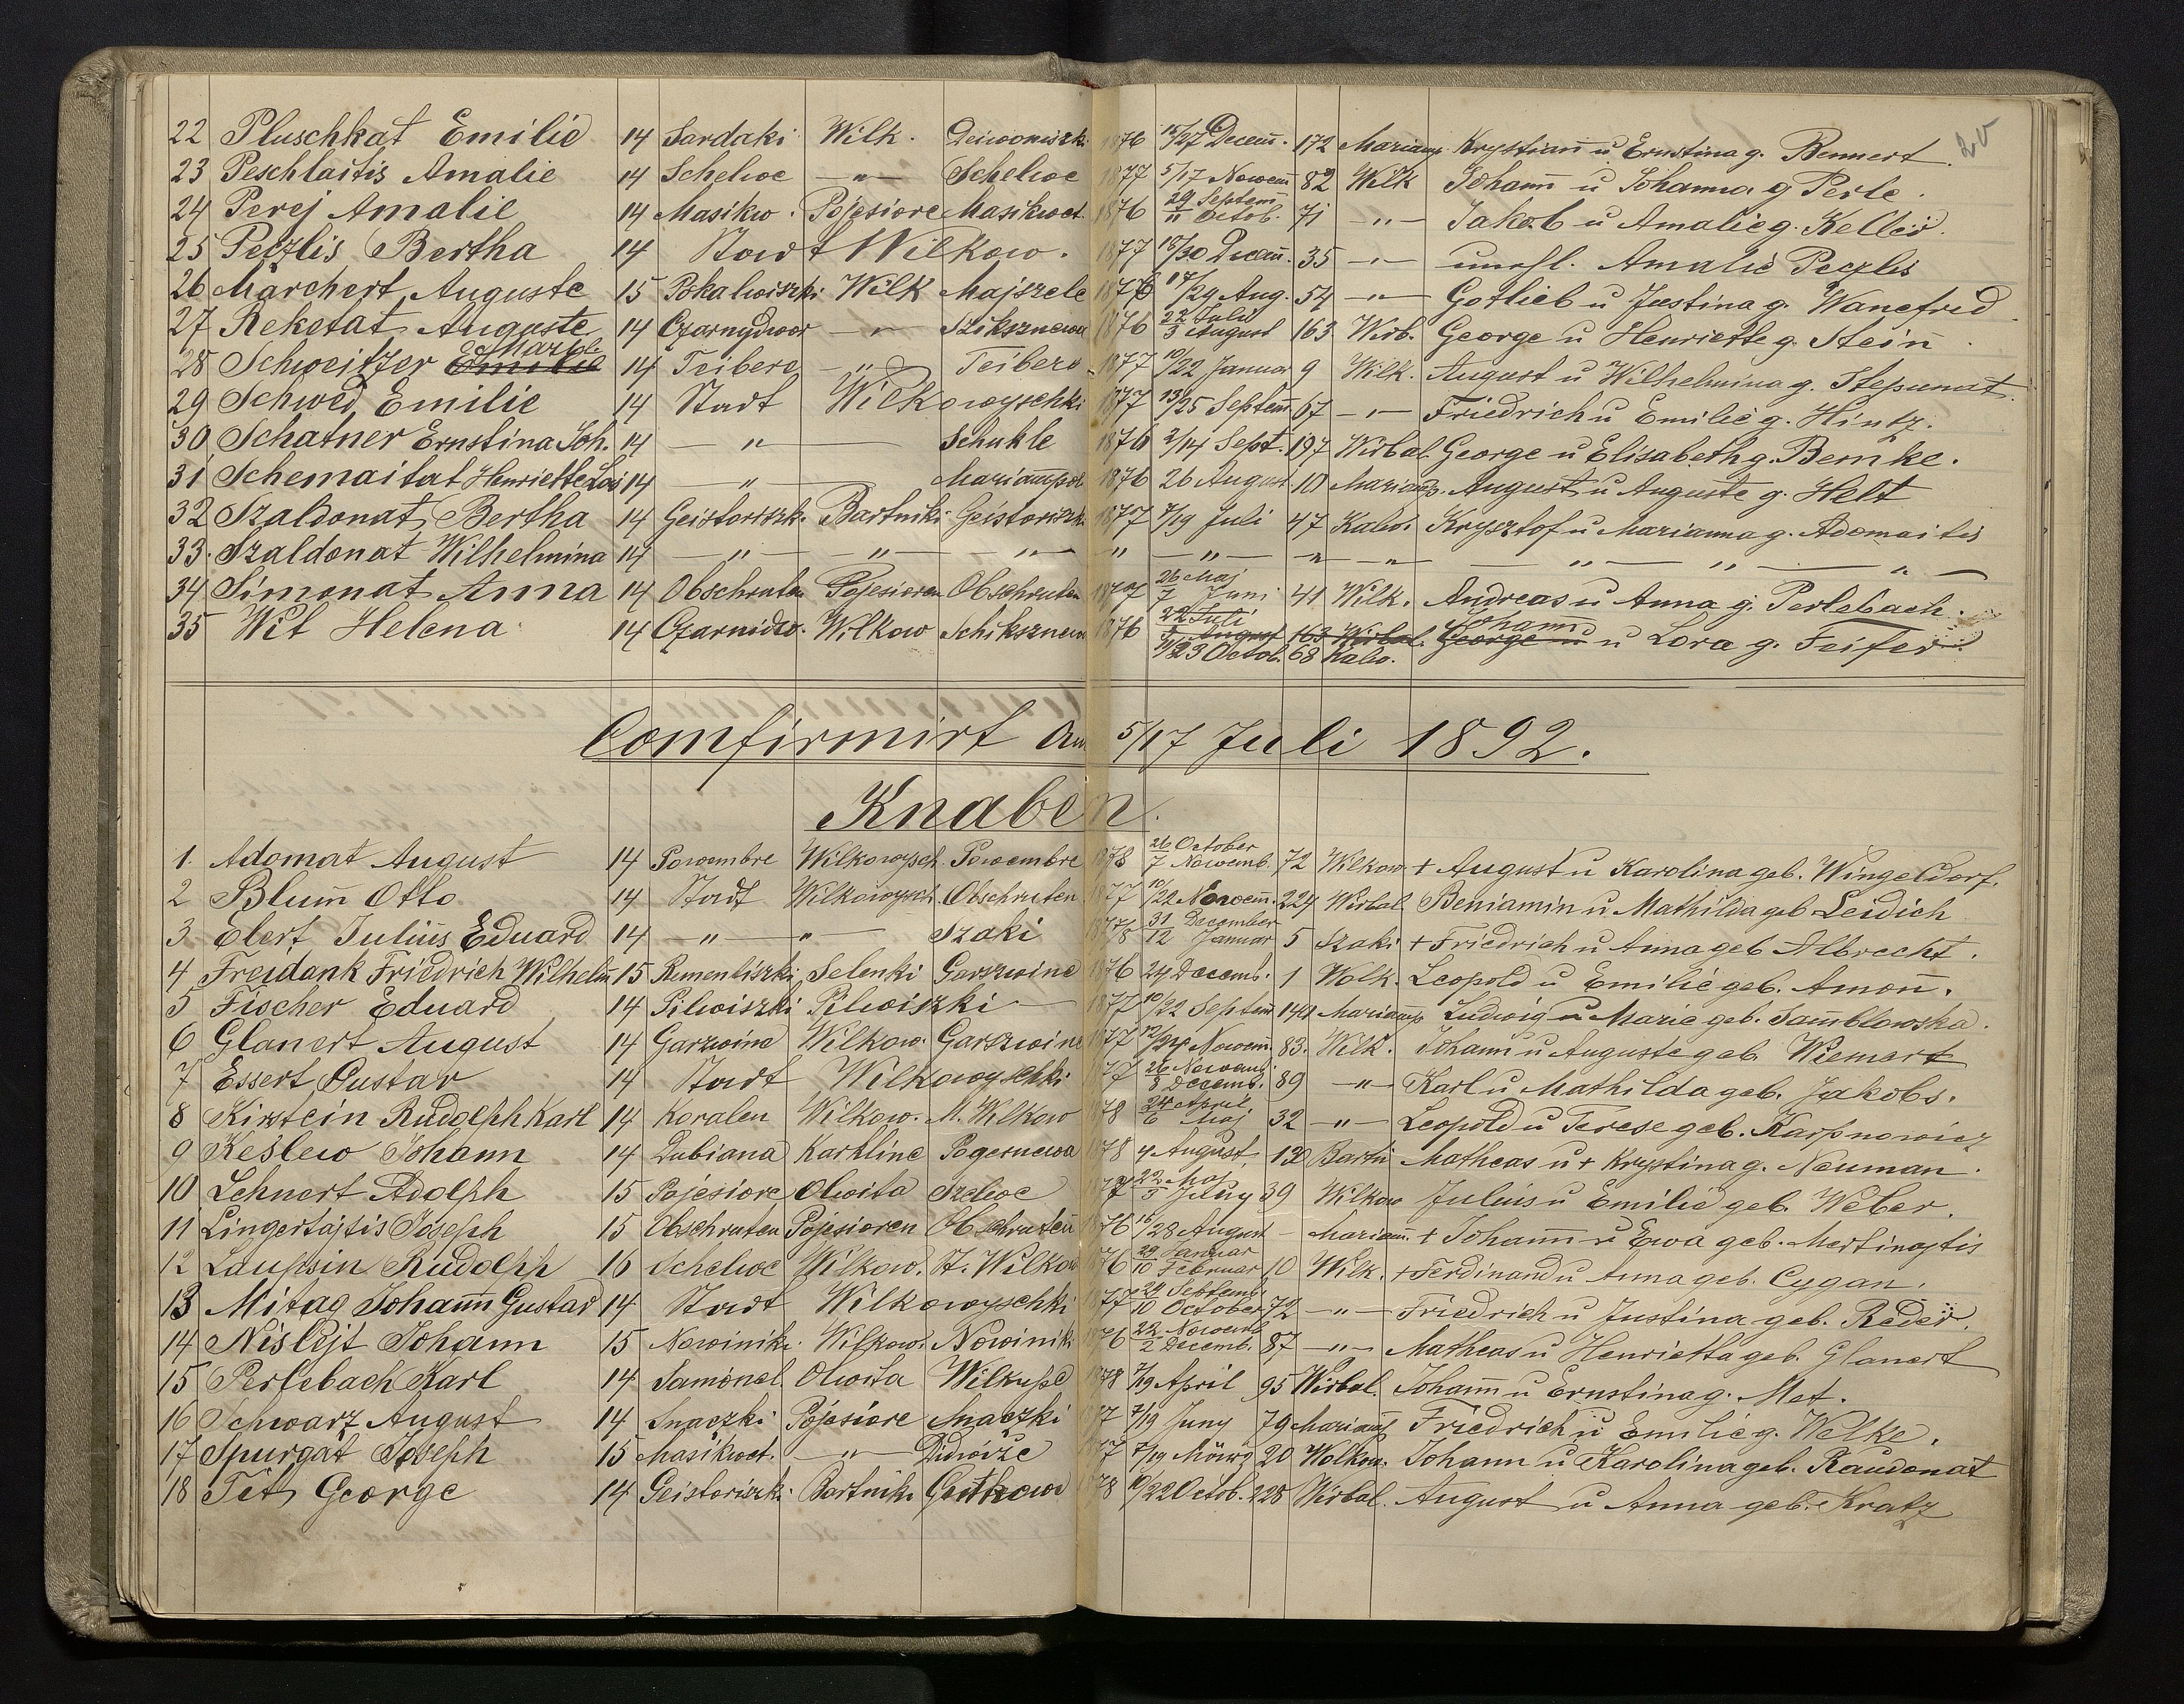 20
22 Pluschkat Emilie 14 Sardaki Wilk. 1876 15/27 Decem̄. 172 Mariamp. Krystian̄ u Ernstina g. Bennert.
23 Peschlaitis Amalie 14 Schelwe —"— Schelwe 1877 5/17 Novem̄ 82 Wilk Joham̄ u Johanna g Perle.
24 Perej Amalie 14 Masikw. Pojesiore Masikwet. 1876 29 Septem̄ / 11 Octob. 71 —"— Jakob u Amalie g. Keller.
25 Peczlis Bertha 14 Stadt Wilkow. 1877 18/30 Decem̄. 35 —"— unehl. Amalie Peczlis
26 Marchert Auguste 15 Pokalwiszki Wilk Majszele 1876 17/29 Aug. 54 —"— Gotlieb u Justina g. Wanefried.
27 Reketat Auguste 14 Czarnydwor —"— Szikszniewa 1876 22 Juli / 3 August 163 Wirb. George u Henriette g. Stein̄.
28 Schweitzer Emilie Marie 14 Teibere —"— Teibere 1877 10/22 Januar 9 Wilk. August u Wilhelmina g. Stepunat.
29 Schwed Emilie 14 Stadt Wilkowyschki 1877 13/25 Septem̄ 67 —"— Friedrich u Emilie g. Hintz.
30 Schatner Ernstina Joh. 14 —"— Schukle 1876 2/14 Sept. 197 Wirbal. George u Elisabeth g. Bemke.
31 Schemaitat Henriette Lui 14 —"— Mariam̄pol 1876 26 August 101 Mariamp. August u Auguste g. Helt
32 Szaldonat Bertha 14 Geistoriszk. Bartniki Geistoriszk. 1877 7/19 Juli 47 Kalw. Krysztof u Marianna g. Adomaitis
33. Szaldonat Wilhelmina 14 —"— —"— —"— —"— —"— —"— —"— —"— —"— —"—
34 Simonat Anna 14 Obschruten Pojesioren Obschruten 1877 26 Maj / 7 Juni 41 Wilk. Andreas u Anna g. Perlebach.
35 Wit Helena 14 Czarnidw. Wilkow Schiksznewa 1876 22 Juli / 3 August 163 Wirbal. George u Joham̄ u Lora g. Feifer.
11/23 Octob. 68 Kalw.
Comfirmirt am 5/17 Juli 1892.
Knaben.
1. Adomat August 14 Powembre Wilkowysch. Powembre 1878 26 October / 7 Novemb. 72 Wilkow. + August u Karolina geb. Wingeldorf.
2 Blum̄ Otto 14 Stadt Wilkowysch. Obschruten 1877 10/22 Novem̄. 224 Wirbal Beniamin u Mathilda geb Leidich
3 Elert Julius Eduard 14 —"— —"— Szaki 1877/8 31 December / 12 Januar 5 Szaki + Friedrich u Anna geb Albrecht.
4 Freidank Friedrich Wilhelm̄ 15 Rementiszki Selenki Garszwine 1876 24 Decemb. 1 Wolk. Leopold u Emilie geb. Amon̄.
5 Fischer Eduard 14 Pilwiszki Pilwiszki — 1877 10/22 Septem̄ 141 Mariamp Ludwig u Marie geb. Sam̄blowska.
6 Glanert August 14 Garzwine Wilkow. Garszwine 1877 12/24 Novem̄. 83. Wilk. Joham̄ u Auguste geb. Wiemert
7 Essert Gustav 14 Stadt Wilkowyschki 1877 26 Novemb. / 8 Decemb. 89 —"— Karl u Mathilda geb. Jakobs.
8 Kirstein Rudolph Karl 14 Koralen Wilkow. M. Wilkow 1878 24 April / 6 Maj 32 —"— Leopold u Terese geb. Karpnowicz
9 Keslew Johann 14 Dubiana Karkline Pogernewa 1878 4 August 130 Bartn Matheas u + Krystina g. Neuman.
10 Lehnert Adolph 15 Pojesiore Olwita Szelwe 1877 22 Maj / 3 Juny 39 Wilkow Julius u Emilie geb. Weber.
11 Lingertajtis Joseph 15 Obschruten Pojesioren Obschruten 1876 16/28 August — Mariam̄. + Joham̄ u Ewa geb. Mertinajtis
12 Laupsin Rudolph 16 Schelwe Wilkow. St. Wilkow 1876 29 Januar / 10 Februar 10 Wilk. + Ferdinand u Anna geb. Cygan.
13 Mitag Joham̄ Gustav 14 Stadt Wilkowyschki 1877 29 Septemb. / 10 October 72 —"— Friedrich u Justina geb. Reder.
14 Nislejt Johann 15 Nowinik. Wilkow. Nowinik 1876 22 Novemb / 2 Decemb. 87 —"— Matheas u Henrietta geb. Glanert
15 Perlebach Karl 14 Samonel. Olwita Wilkupe 1878 7/19 April 95 Wirbal. Joham̄ u Ernstina g. Met.
16 Schwarz August 14 Snaczki Pojesiore Snaczki 1877 7/19 Juny 79 Mariamp Friedrich u Emilie g. Welke.
17 Spurgat Joseph 15 Masikwet. —"— Didwize 1877 7/19 März 20 Wolkow. Johann u Karolina geb. Raudonat
18 Tet George 14 Geistoriszk. Bartnik. 1878 10/22 Octob. 228 Wirbal. August u Anna geb. Kratz